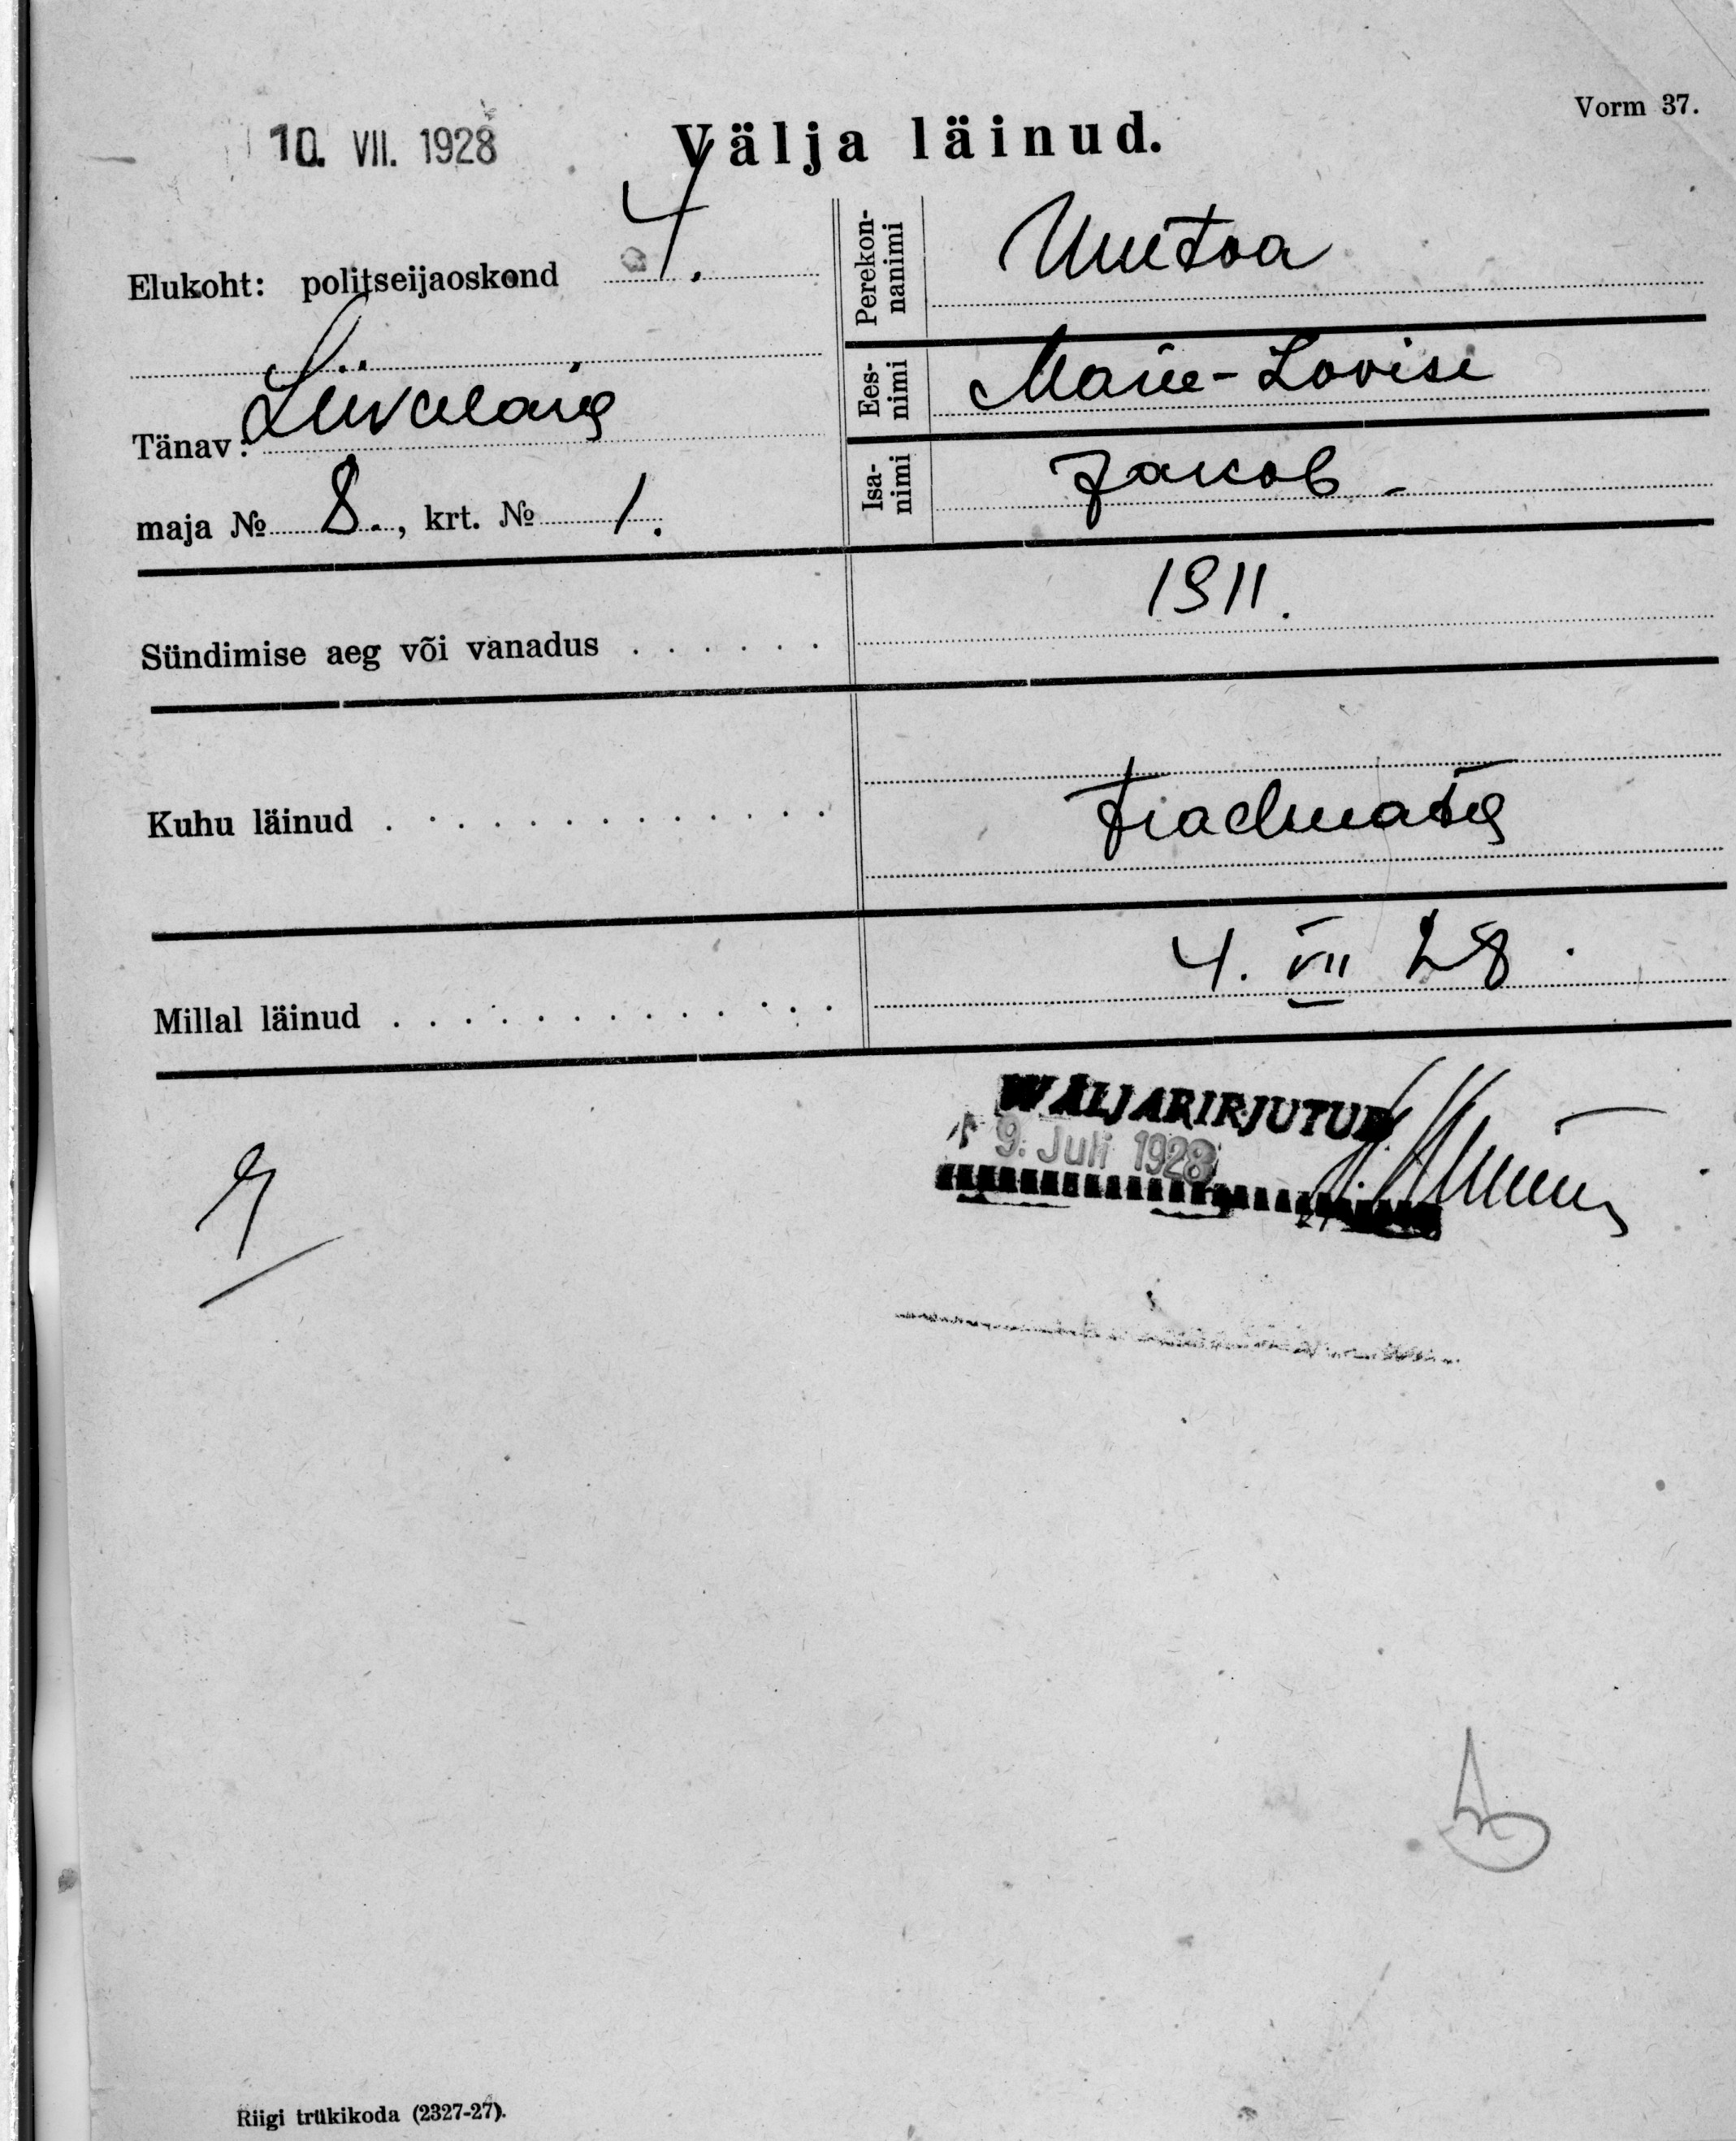 Vorm 37.
10. VII. 1928
Välja läinud.
Elukoht: politseijaoskond 4.
Tänav: Liivalaia
maja № 8., krt. № 1.
Perekon-
nanimi
Uuetoa
Ees-
nimi
Marie-Lovise
Isa-
nimi
Jakob -
Sündimise aeg või vanadus . . . . . .
1911.
Kuhu läinud . . . . . . . . . . . . .
Teadmata
Millal läinud . . . . . . . . . . . . .
4. VII 28.
WÄLJAKIRJUTUD
9. Juli 1928
Riigi trükikoda (2327-27).